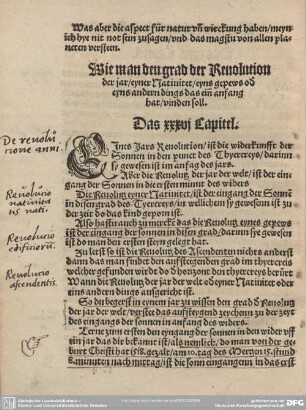 Was aber die aspect für natur vñ wierckung haben/meyn
ich hye nit not sein zusagen/vnd das magstu von allen pla=
neten versteen.
Wie man den grad der Revolution
der jar/eyner Natiuitet/eyns gepews oð
eyns andern dings das ein anfang
hat/vinden soll.
Das xxxvj Capitel.
De revolu
tione anni.
Eines Jars Revolution/ist die widerkunfft der
Sonnen in den punct des Thyercreys/darinn
sy gewesen ist im anfag des jars.
Aber die Revolutz der jar der welt/ist der ein
gang der Sonnen in die ersten minut des widers
Revolucio
nativitat
tis nati.
Die Revolutz eyner Natiuitet/ist der eingang der Sonnē
in den grad des Thyercreys/in wellichem sy gewesem ist zu
der zeit do das kind geporn ist.
Revolucio
edificiorum.
Also hastu auch zumercken das die Revolutz eynes gepews
ist der eingang der sonnen in disen grad/darinn sye gewesen
ist do man den ersten steyn gelegt hat.
Revolucio
ascendentis.
Zu letst so ist die Revolutz des Ascendenten nichts anderst
dann das man findet den auffsteigenden grad im thyercreis
welcher gefunden wirt do ð horizont den thyercreys berürt
Wann die Revolutz der jar der welt oð eyner Natiuitet oder
eins andern dings außgericht ist.
So du begerst in eynem jar zu wissen den grad ð Revolutz
der jar der welt/verstee das auffsteygend zeychenn zu der zeyt
des eingangs der sonnen in anfang des widers.
Lerne zum ersten den eyngang der Sonnen in den wider vff
ein jar das dir bekannt ist/als nemlich/do man von der ge=
burt Christi hat 1518. gezalt/am 10. tag des Mertzen 15. stund
minuten nach mittag/ist die sonn eingangenn in das erst